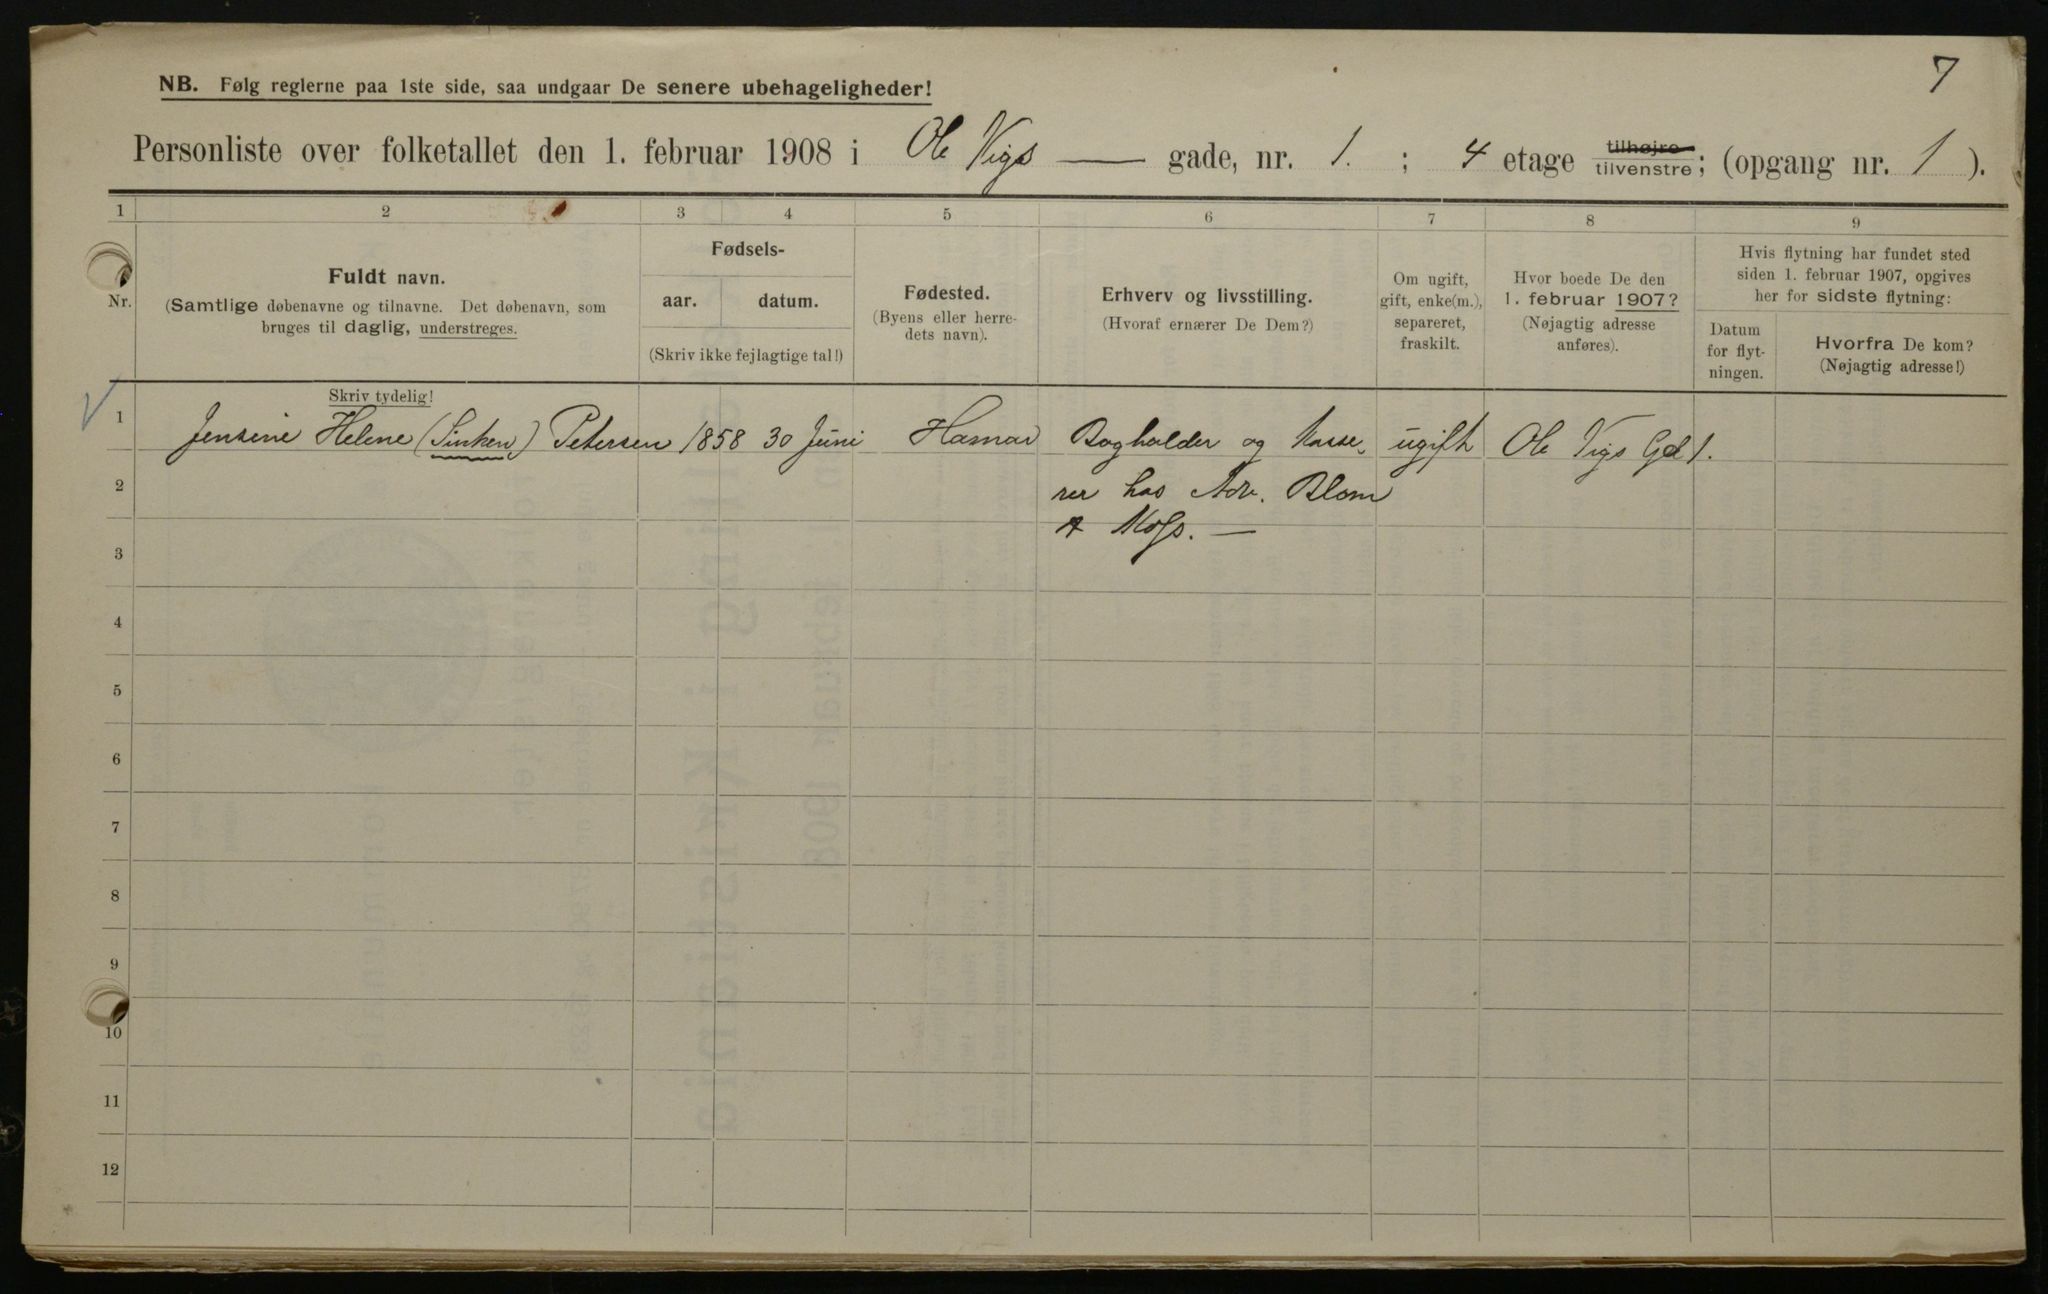 7
NB. Følg reglerne paa 1ste side, saa undgaar De senere ubehageligheder!
Personliste over folketallet den 1. februar 1908 i Ole Vigs — gade, nr. 1. ; 4 etage tilhøjre tilvenstre; (opgang nr. 1 ).
1 2 3 4 5 6 7 8 9
Nr.
Fuldt navn.
(Samtlige døbenavne og tilnavne. Det døbenavn, som
bruges til daglig, understreges.
Fødsels-
aar. datum.
(Skriv ikke fejlagtige tal!)
Fødested.
(Byens eller herre-
dets navn).
Erhverv og livsstilling.
(Hvoraf ernærer De Dem?)
Om ugift,
gift, enke(m.),
separeret,
fraskilt.
Hvor boede De den
1. februar 1907?
(Nøjagtig adresse
anføres).
Hvis flytning har fundet sted
siden 1. februar 1907, opgives
her for sidste flytning:
Datum
for flyt-
ningen.
Hvorfra De kom?
(Nøjagtig adresse!)
Skriv tydelig!
1 Jensine Helene (Sinken) Petersen 1858 30 Juni Hamar Bogholder og Kasse- ugift Ole Vigs Gd 1.
2 rer hos Adv. Blom
3
4
5
6
7
8
9
10
11
12